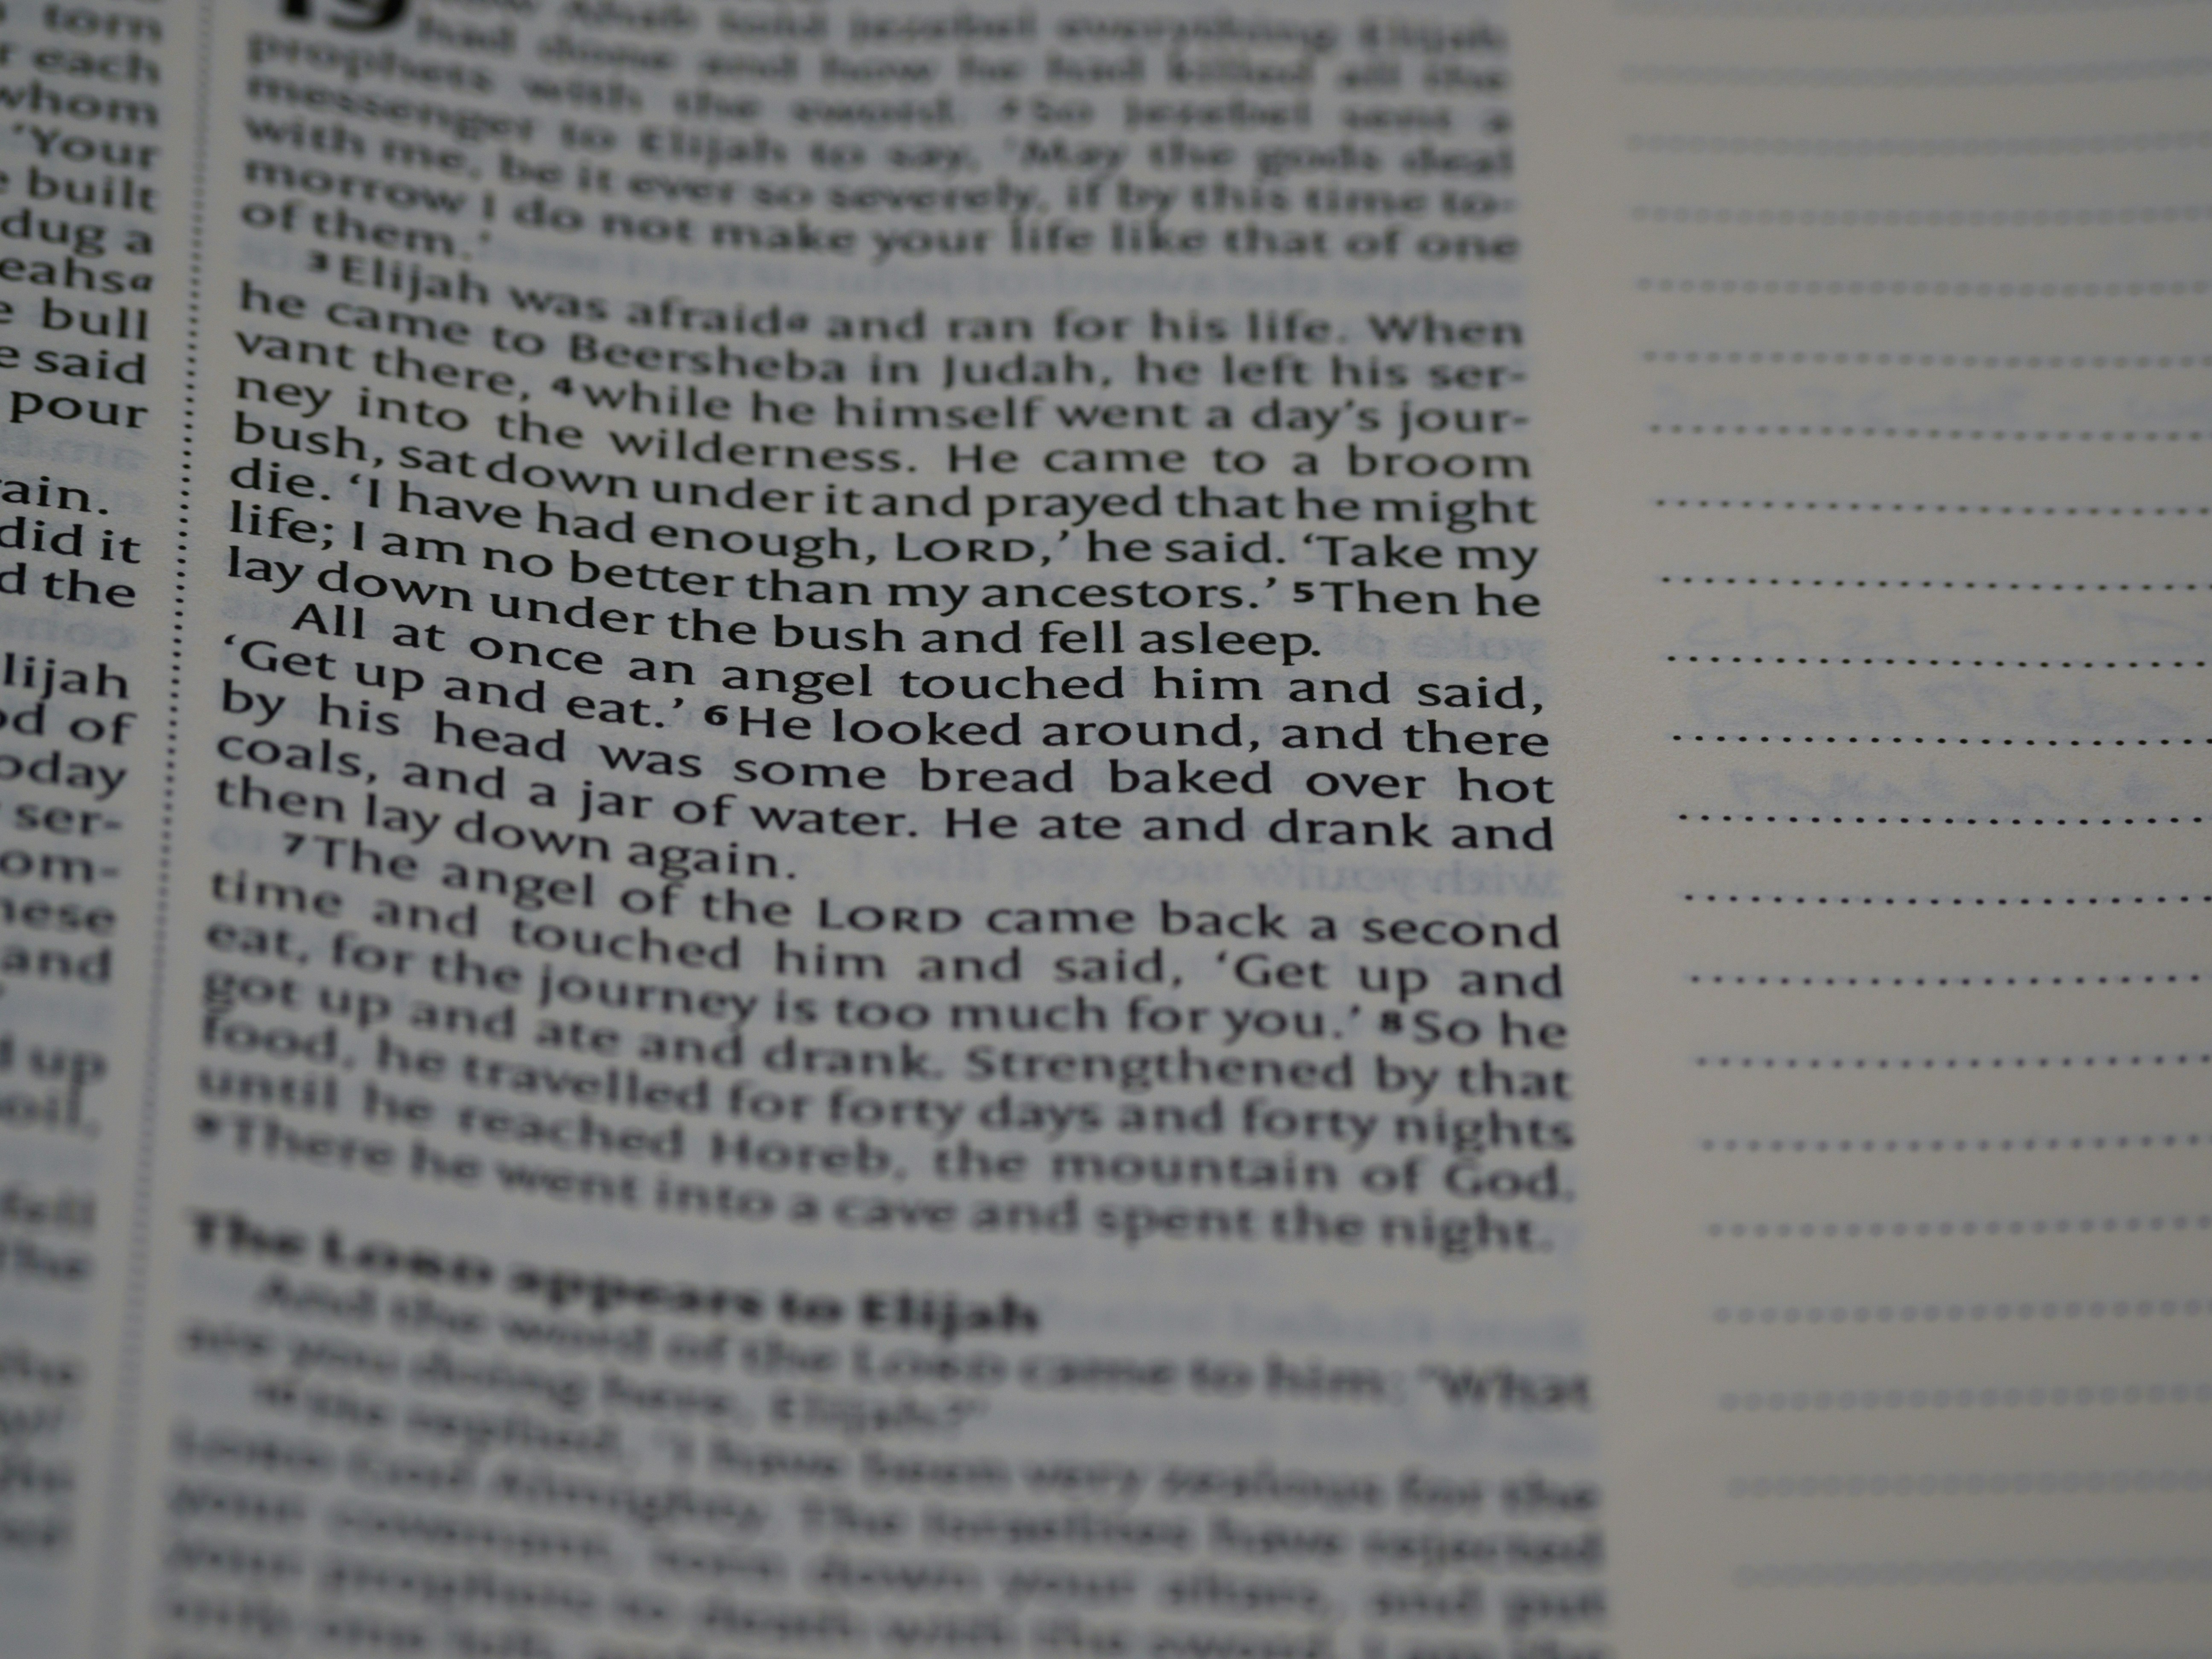 torn
each
whom
'Your
built
dug a
eahsa
e bull
e said
pour
ain.
did it
d the
lijah
od of
oday
ser-
om-
hese
and
up
oil.
fell
The
19
Ahab told Jezebel everything Elijah
had done and how he had killed all the
prophets with the sword. 2 So Jezebel sent a
messenger to Elijah to say, 'May the gods deal
with me, be it ever so severely, if by this time to-
morrow I do not make your life like that of one
of them.'
3 Elijah was afraida and ran for his life. When
he came to Beersheba in Judah, he left his ser-
vant there, 4 while he himself went a day's jour-
ney into the wilderness. He came to a broom
bush, sat down under it and prayed that he might
die. 'I have had enough, LORD,' he said. 'Take my
life; I am no better than my ancestors.' 5 Then he
lay down under the bush and fell asleep.
All at once an angel touched him and said,
'Get up and eat.' 6 He looked around, and there
by his head was some bread baked over hot
coals, and a jar of water. He ate and drank and
then lay down again.
7 The angel of the LORD came back a second
time and touched him and said, 'Get up and
eat, for the journey is too much for you.' 8 So he
got up and ate and drank. Strengthened by that
food, he travelled for forty days and forty nights
until he reached Horeb, the mountain of God.
9 There he went into a cave and spent the night.
The LORD appears to Elijah
And the word of the LORD came to him: 'What
are you doing here, Elijah?'
10 He replied, 'I have been very zealous for the
LORD God Almighty. The Israelites have rejected
your covenant, torn down your altars, and put
your prophets to death with the sword. I am the
only one left,